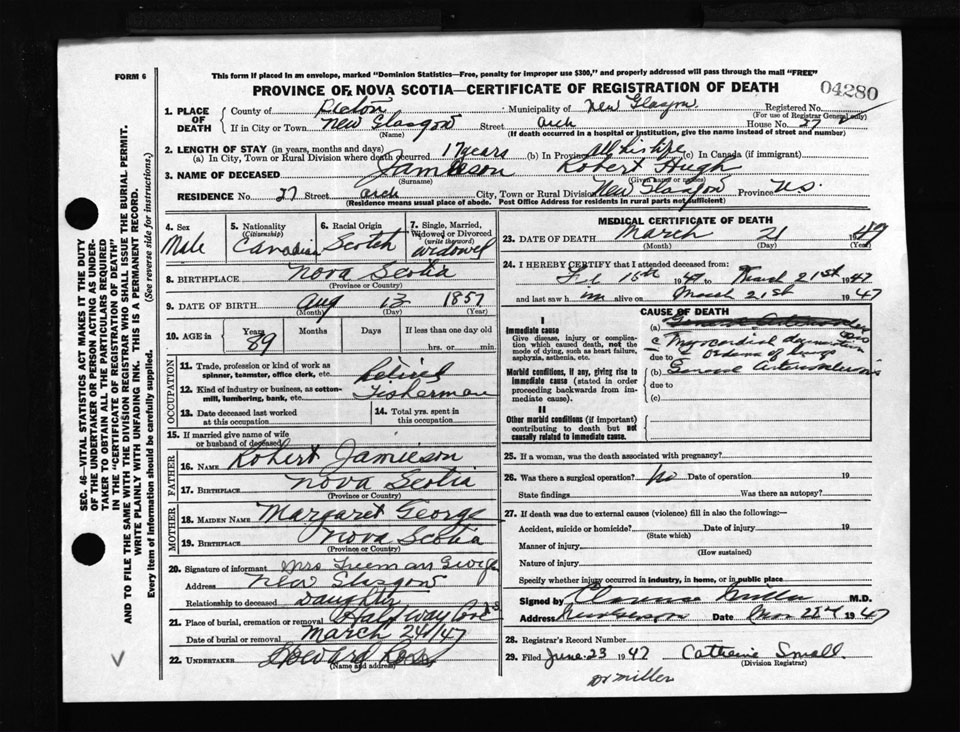 FORM 6
This form if placed in an envelope, marked "Dominion Statistics—Free, penalty for improper use $300," and properly addressed will pass through the mail "FREE"
PROVINCE OF NOVA SCOTIA—CERTIFICATE OF REGISTRATION OF DEATH
04280
1. PLACE OF DEATH County of Pictou Municipality of New Glasgow Registered No.
(For use of Registrar General only)
If in City or Town New Glasgow Street Arch House No. 27
(Name) (If death occurred in a hospital or institution, give the name instead of street and number)
2. LENGTH OF STAY (in years, months and days)
(a) In City, Town or Rural Division where death occurred 17 years (b) In Province all his life (c) In Canada (if immigrant)
3. NAME OF DECEASED Jamieson Robert Hugh
(Surname) (Given name or names)
RESIDENCE No. 27 Street Arch City, Town or Rural Division New Glasgow Province N.S.
(Residence means usual place of abode. Post Office Address for residents in rural parts not sufficient)
4. Sex Male
5. Nationality (Citizenship) Canadian
6. Racial Origin Scotch
7. Single, Married, Widowed or Divorced (write the word) Widowed
8. BIRTHPLACE Nova Scotia
(Province or Country)
9. DATE OF BIRTH Aug 13 1857
(Month) (Day) (Year)
10. AGE in Years 89 Months Days If less than one day old
hrs. or min.
OCCUPATION
11. Trade, profession or kind of work as spinner, teamster, office clerk, etc. Retired
12. Kind of industry or business, as cotton-mill, lumbering, bank, etc. Fisherman
13. Date deceased last worked at this occupation
14. Total yrs. spent in this occupation
15. If married give name of wife or husband of deceased
FATHER
16. NAME Robert Jamieson
17. BIRTHPLACE Nova Scotia
(Province or Country)
MOTHER
18. MAIDEN NAME Margaret George
19. BIRTHPLACE Nova Scotia
(Province or Country)
20. Signature of informant Mrs Freeman
Address New Glasgow
Relationship to deceased Daughter
21. Place of burial, cremation or removal Half way Cove N.S.
Date of burial or removal March 24/47
22. UNDERTAKER Howard Ross
(Name and address)
MEDICAL CERTIFICATE OF DEATH
23. DATE OF DEATH March 21 1947
(Month) (Day) (Year)
24. I HEREBY CERTIFY that I attended deceased from:
Feb 15th 1947 to March 21st 1947
and last saw him alive on March 21st 1947
CAUSE OF DEATH
I
Immediate cause
Give disease, injury or complication which caused death, not the mode of dying, such as heart failure, asphyxia, asthenia, etc.
(a)
Myocardial
due to Oedema of lungs
Morbid conditions, if any, giving rise to immediate cause (stated in order proceeding backwards from immediate cause).
(b) General Arteriosclerosis
due to
(c)
II
Other morbid conditions (if important) contributing to death but not causally related to immediate cause.
25. If a woman, was the death associated with pregnancy?
26. Was there a surgical operation? No Date of operation 19
State findings Was there an autopsy?
27. If death was due to external causes (violence) fill in also the following:—
Accident, suicide or homicide? Date of injury 19
(State which)
Manner of injury
(How sustained)
Nature of injury
Specify whether injury occurred in industry, in home, or in public place
Signed by Clarence Miller M.D.
Address New Glasgow Date Mar 22nd 1947
28. Registrar's Record Number
29. Filed June 23 1947 Catherine Small
(Division Registrar)
Dr Miller
SEC. 46—VITAL STATISTICS ACT MAKES IT THE DUTY
OF THE UNDERTAKER OR PERSON ACTING AS UNDER-
TAKER TO OBTAIN ALL THE PARTICULARS REQUIRED
IN THE "CERTIFICATE OF REGISTRATION OF DEATH"
AND TO FILE THE SAME WITH THE DIVISION REGISTRAR WHO SHALL ISSUE THE BURIAL PERMIT.
WRITE PLAINLY WITH UNFADING INK. THIS IS A PERMANENT RECORD.
Every item of Information should be carefully supplied. (See reverse side for instructions.)